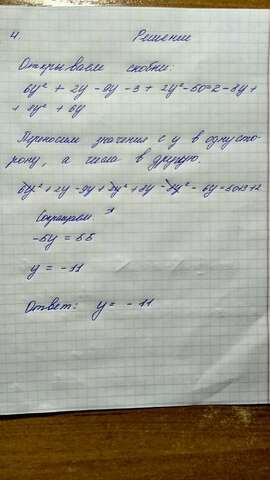 4. Решение
Открываем скобки:
6y² + 2y - 9y - 3 + 2y² - 50 = 2 - 8y +
+ 8y² + 6y
Переносим значения с y в одну сто-
рону, а числа в другую.
6y² + 2y - 9y + 2y² + 8y - 8y² - 6y = 50+3+2
Сокращаем:
-5y = 55
y = -11
Ответ: y = - 11